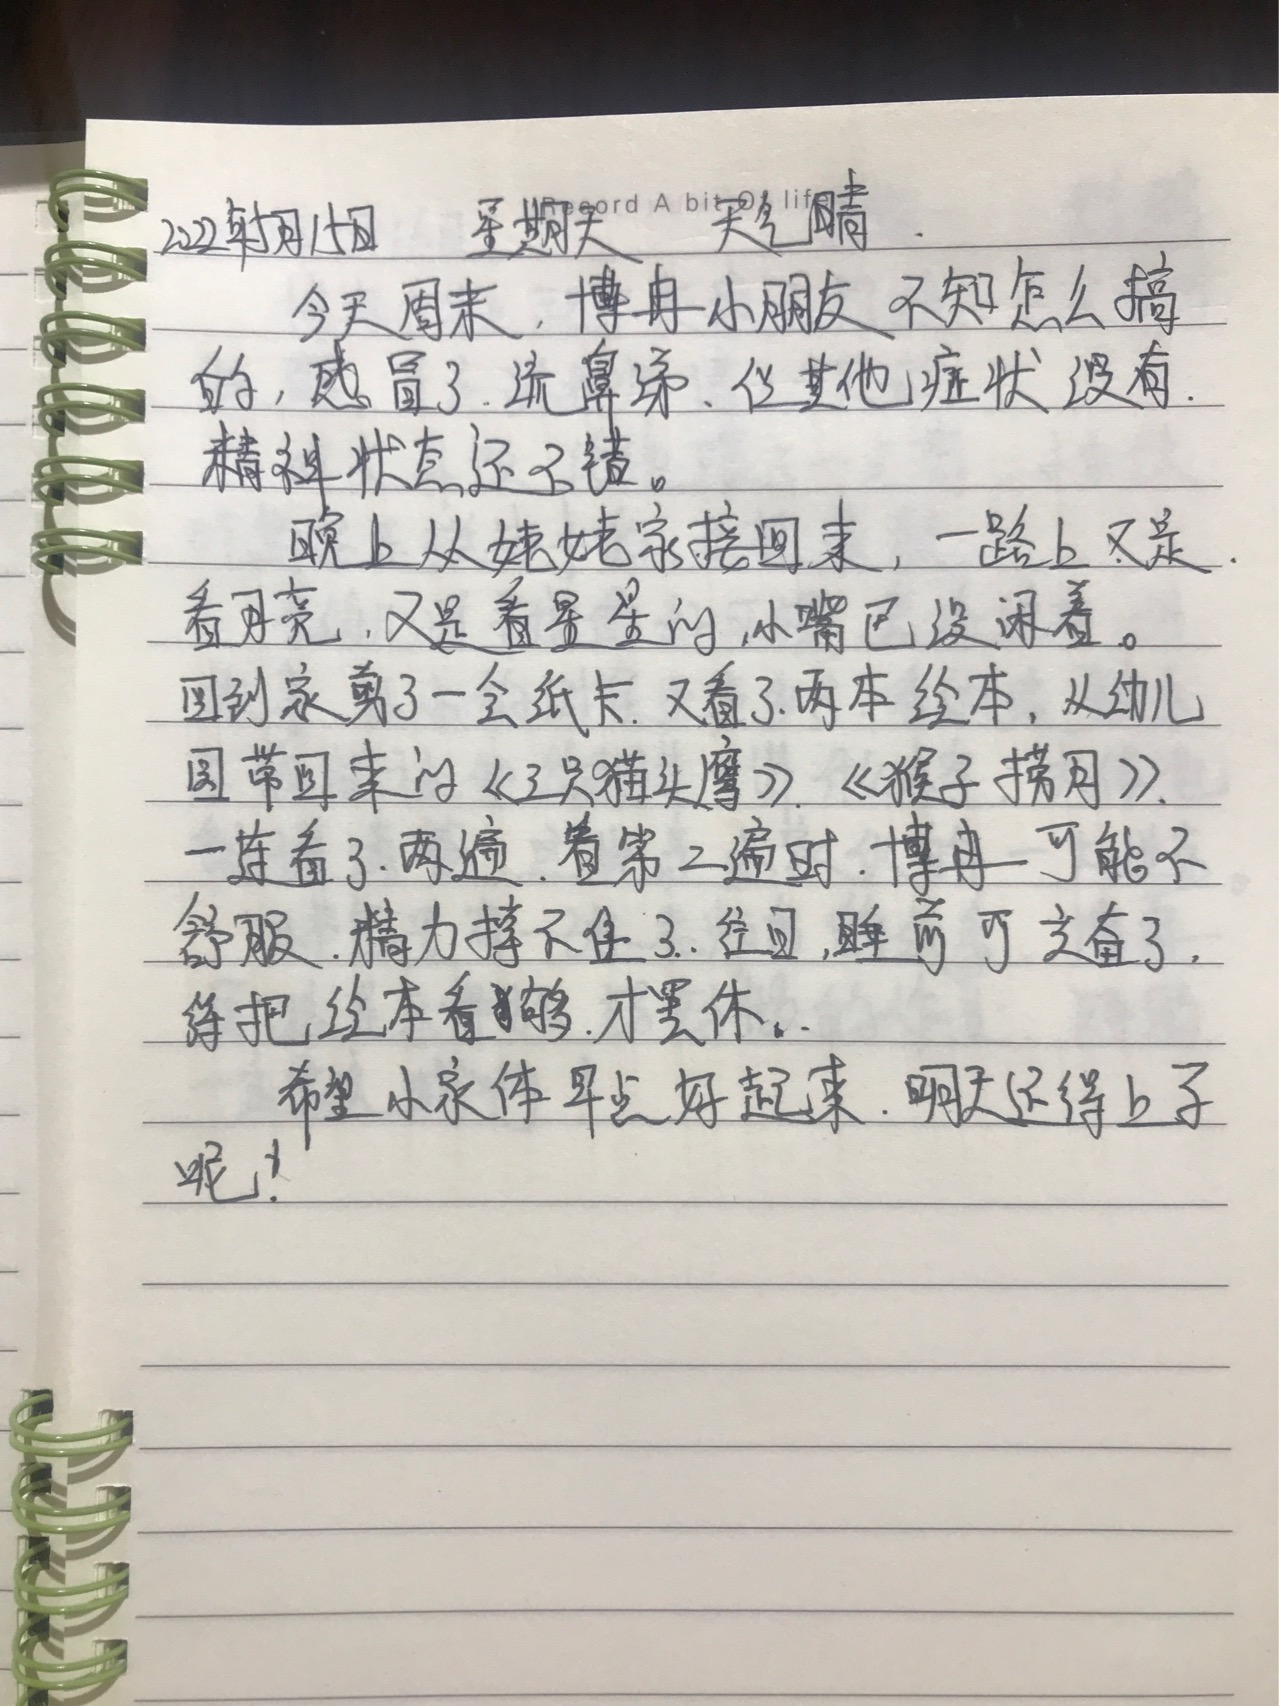 Record A bit Of life
2022年5月15日 星期天 天气晴.
今天周末,博冉小朋友不知怎么搞
的,感冒了.流鼻涕、但其他症状没有.
精神状态还不错。
晚上从姥姥家接回来,一路上又是.
看月亮,又是看星星的,小嘴巴没闲着。
回到家剪了一会纸卡.又看了.两本绘本,从幼儿
园带回来的《三只猫头鹰》.《猴子捞月》.
一连看了.两遍.看第二遍时.博冉一可能不
舒服.精力撑不住了..往日,睡前可兴奋了,
得把绘本看够.才罢休..
希望小家伙早点好起来.明天还得上学
呢!